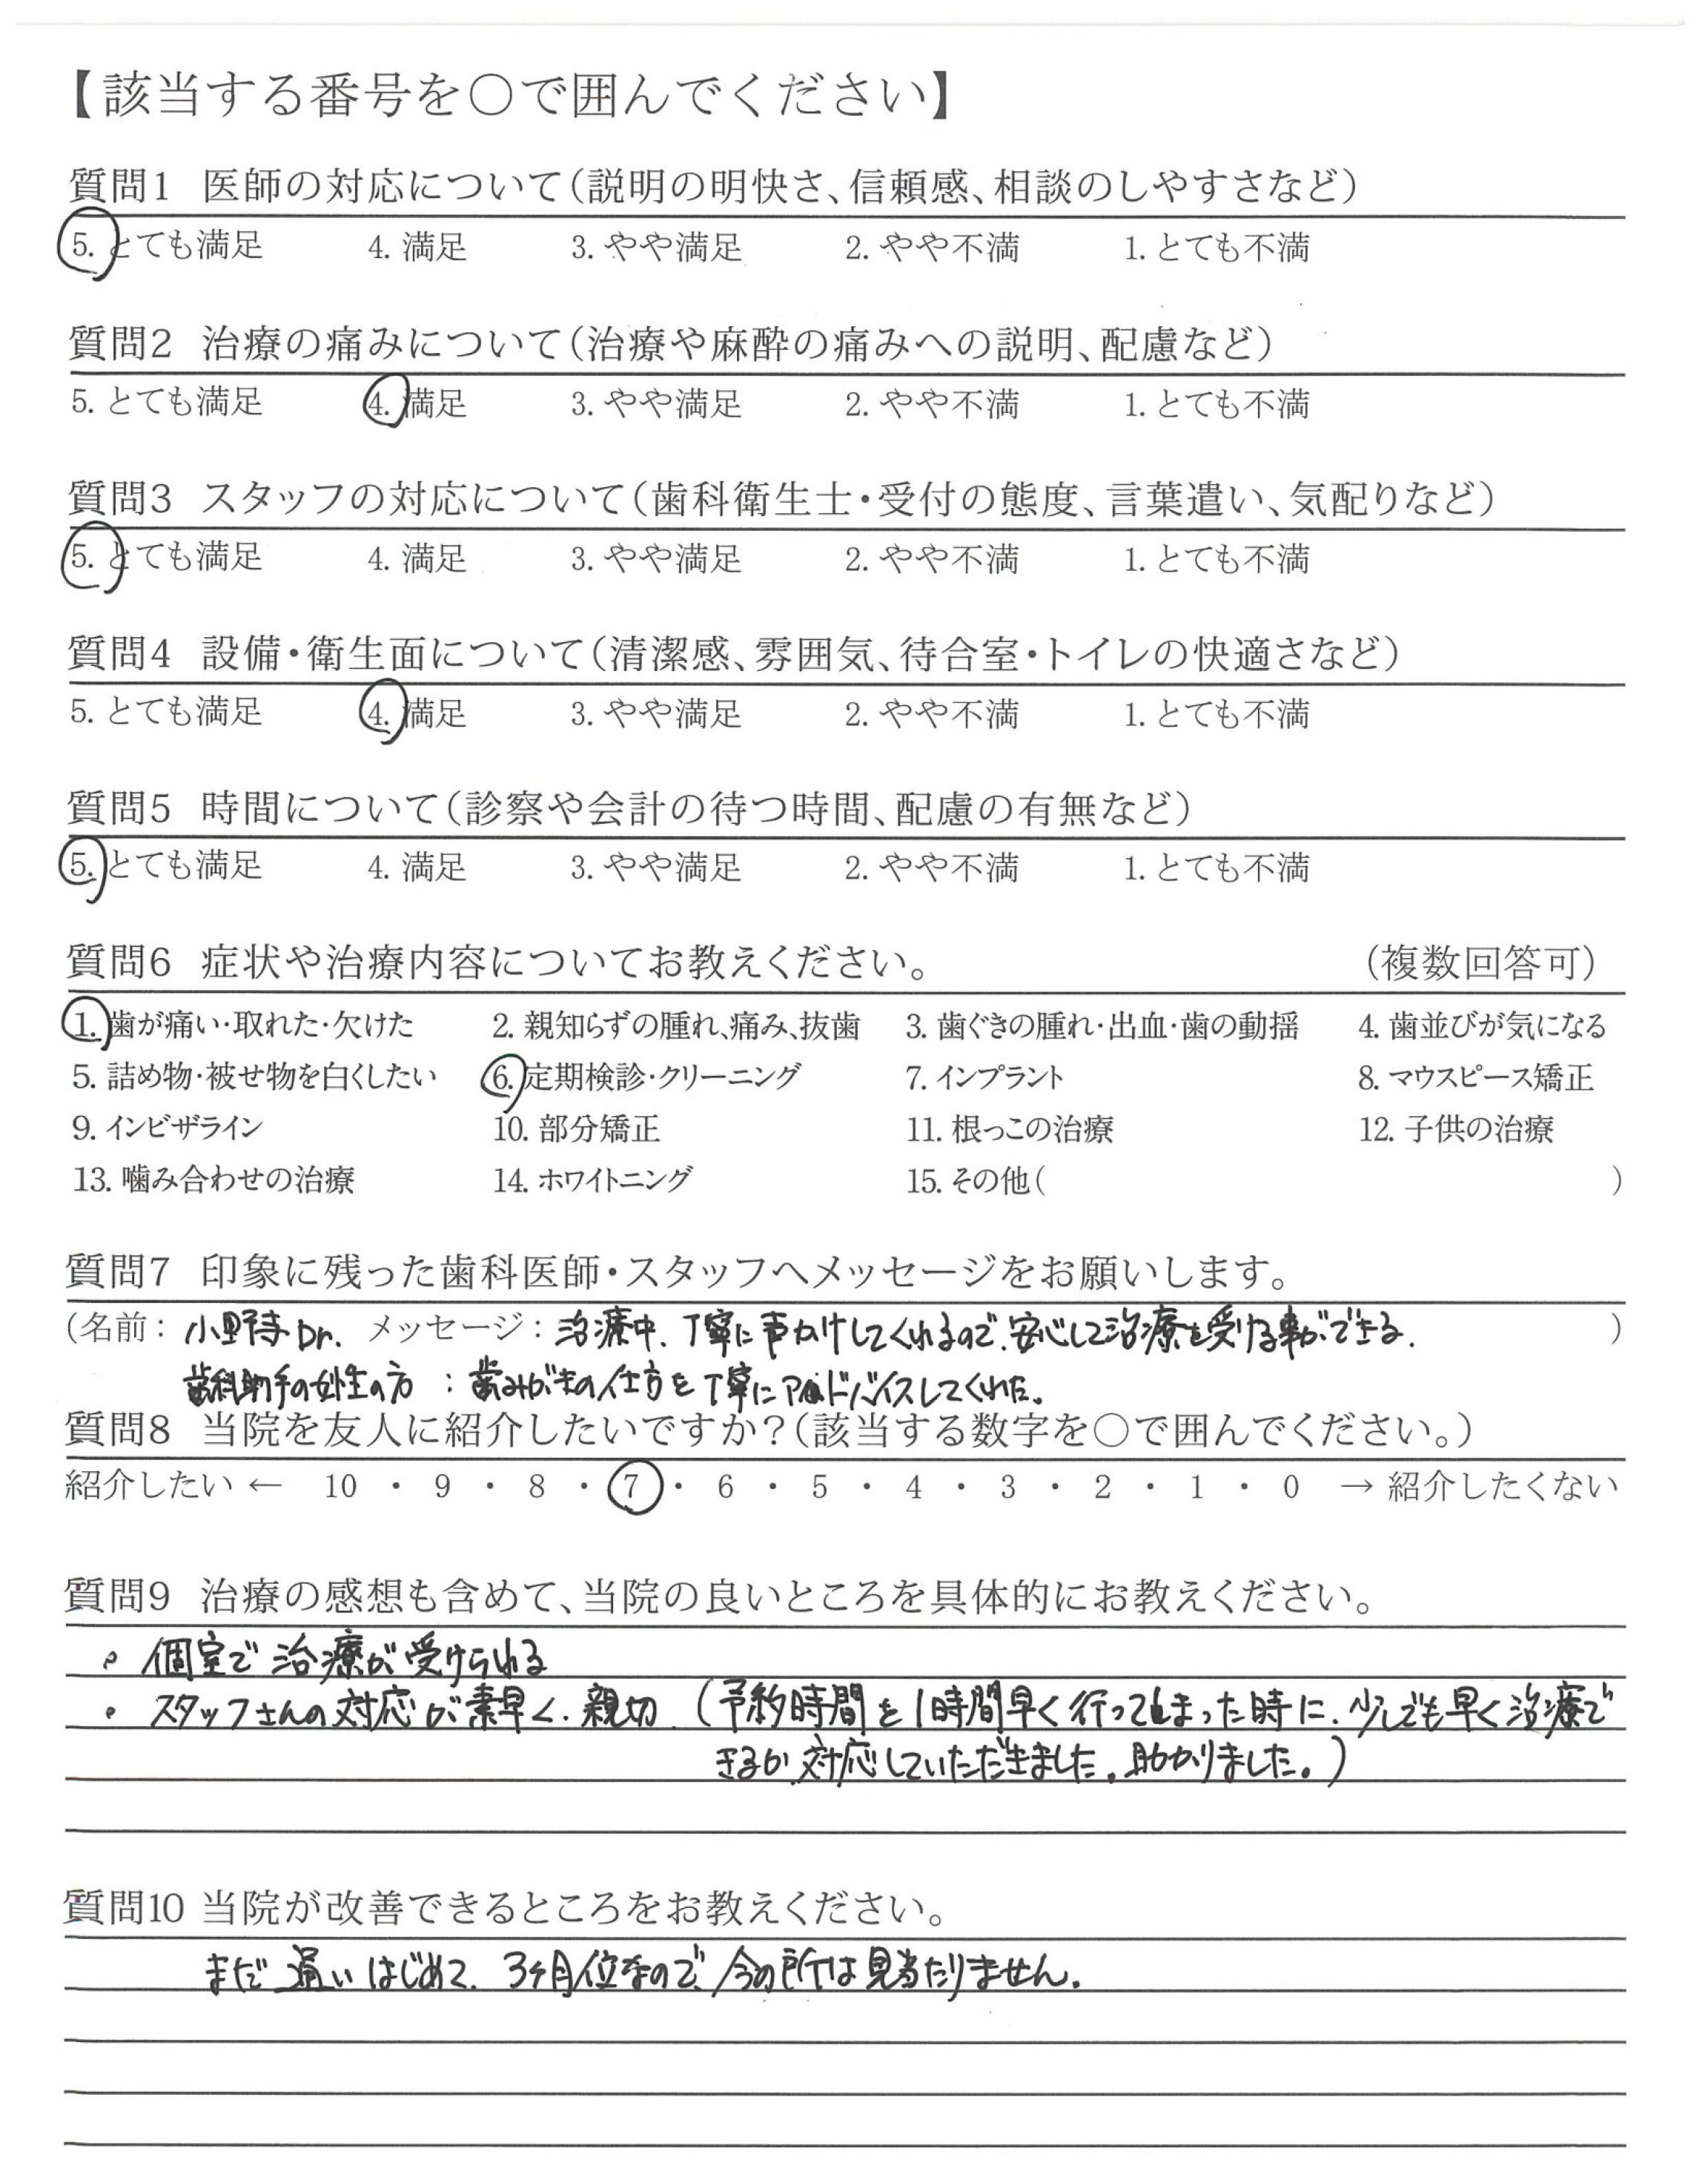 【該当する番号を○で囲んでください】
質問1 医師の対応について(説明の明快さ、信頼感、相談のしやすさなど)
5. とても満足 4. 満足 3. やや満足 2. やや不満 1. とても不満
質問2 治療の痛みについて(治療や麻酔の痛みへの説明、配慮など)
5. とても満足 4. 満足 3. やや満足 2. やや不満 1. とても不満
質問3 スタッフの対応について(歯科衛生士・受付の態度、言葉遣い、気配りなど)
5. とても満足 4. 満足 3. やや満足 2. やや不満 1. とても不満
質問4 設備・衛生面について(清潔感、雰囲気、待合室・トイレの快適さなど)
5. とても満足 4. 満足 3. やや満足 2. やや不満 1. とても不満
質問5 時間について(診察や会計の待つ時間、配慮の有無など)
5. とても満足 4. 満足 3. やや満足 2. やや不満 1. とても不満
質問6 症状や治療内容についてお教えください。 (複数回答可)
1. 歯が痛い・取れた・欠けた 2. 親知らずの腫れ、痛み、抜歯 3. 歯ぐきの腫れ・出血・歯の動揺 4. 歯並びが気になる
5. 詰め物・被せ物を白くしたい 6. 定期検診・クリーニング 7. インプラント 8. マウスピース矯正
9. インビザライン 10. 部分矯正 11. 根っこの治療 12. 子供の治療
13. 噛み合わせの治療 14. ホワイトニング 15. その他( )
質問7 印象に残った歯科医師・スタッフへメッセージをお願いします。
(名前: 小野寺Dr. メッセージ: 治療中、丁寧に声かけしてくれるので、安心して治療を受ける事ができる。 )
歯科助手の女性の方 : 歯みがきの仕方を丁寧にアドバイスしてくれた。
質問8 当院を友人に紹介したいですか?(該当する数字を○で囲んでください。)
紹介したい ← 10 ・ 9 ・ 8 ・ 7 ・ 6 ・ 5 ・ 4 ・ 3 ・ 2 ・ 1 ・ 0 → 紹介したくない
質問9 治療の感想も含めて、当院の良いところを具体的にお教えください。
・ 個室で治療が受けられる
・ スタッフさんの対応が素早く、親切 (予約時間を1時間早く行ってしまった時に、少しでも早く治療で
きるか、対応していただきました。助かりました。)
質問10 当院が改善できるところをお教えください。
まだ通いはじめて、3ヶ月位なので、今の所は見当たりません。